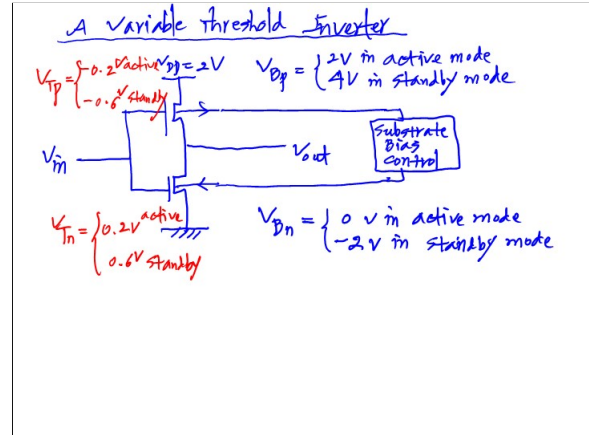 A Variable Threshold Inverter
V_Tp = { -0.2V active
-0.6V Standby
V_DD = 2V
V_Bp = { 2V in active mode
4V in standby mode
Substrate
Bias
Control
V_in
V_out
V_Tn = { 0.2V active
0.6V Standby
V_Bn = { 0 V in active mode
-2 V in standby mode